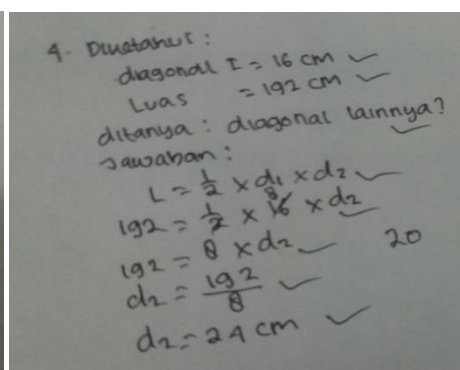 4. Diketahui :
diagonal I = 16 cm ✓
Luas = 192 cm ✓
ditanya : diagonal lainnya? ✓
Jawaban :
L = 1/2 × d1 × d2 ✓
192 = 1/2 × 16 8 × d2 ✓
192 = 8 × d2 ✓ 20
d2 = 192/8 ✓
d2 = 24 cm ✓